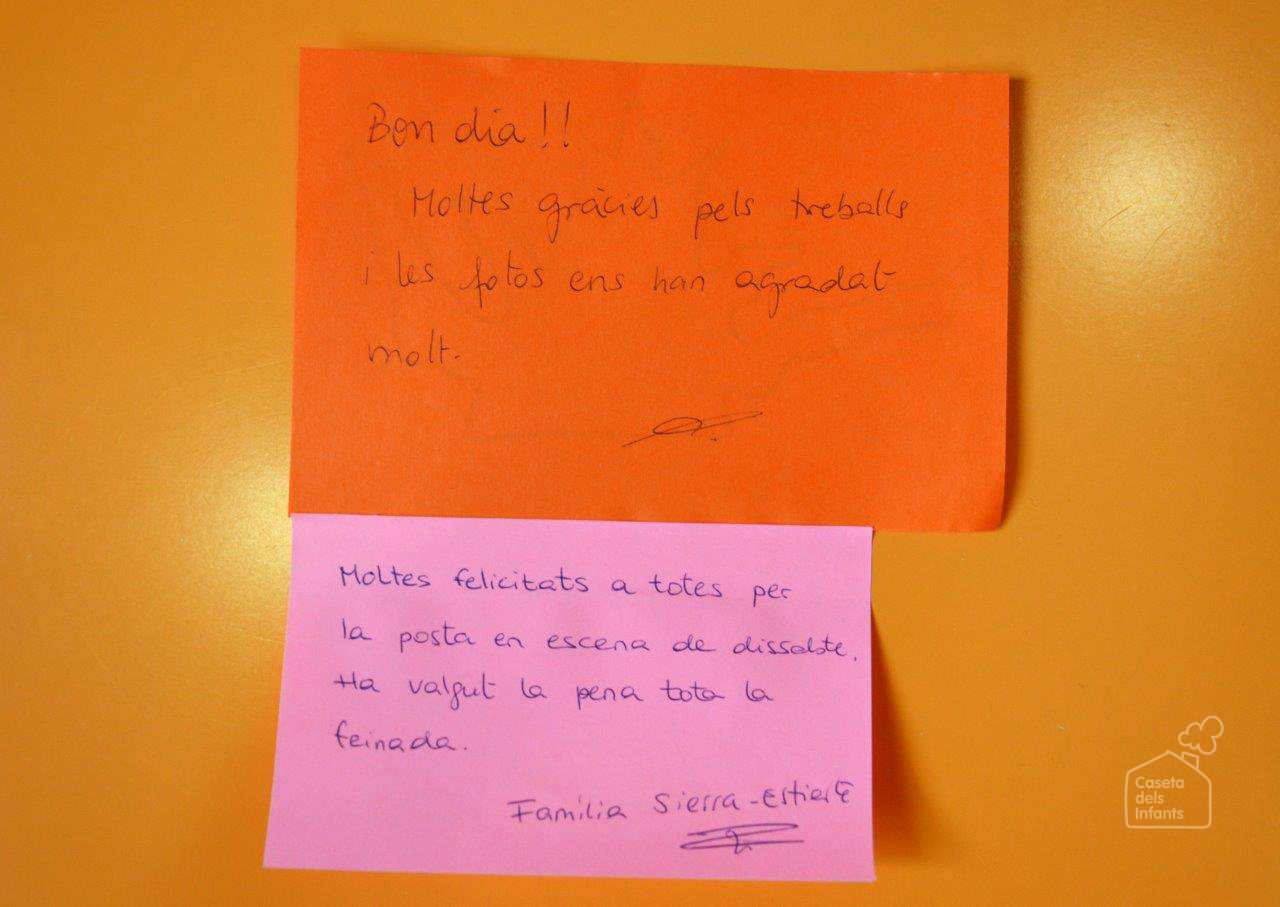 Bon dia!!
Moltes gràcies pels treballs
i les fotos ens han agradat
molt.
Moltes felicitats a totes per
la posta en escena de dissabte.
Ha valgut la pena tota la
feinada.
Família Sierra-Estiarte
Caseta
dels
Infants